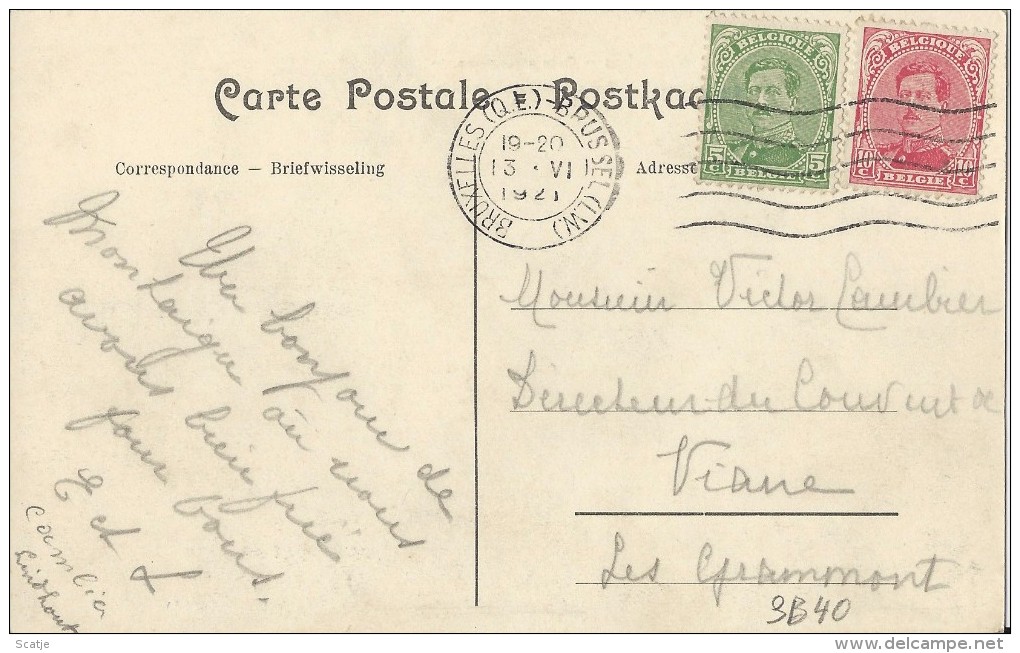 Carte Postale - Postkaa
Correspondance — Briefwisseling
Adresse
BRUXELLES (Q.L.) BRUSSEL (L.W.)
19-20
13 VI
1921
BELGIQUE
5 c
5 c
BELGIE
BELGIQUE
10 c
10 c
BELGIE
Un bonjour de
Montaigu où nous
avons bien prié
pour vous.
E et L
Cambier
Lindhout
Monsieur Victor Cambier
Directeur du Couvent de
Viane
Les Grammont
3B40
Scatje
delcampe.net